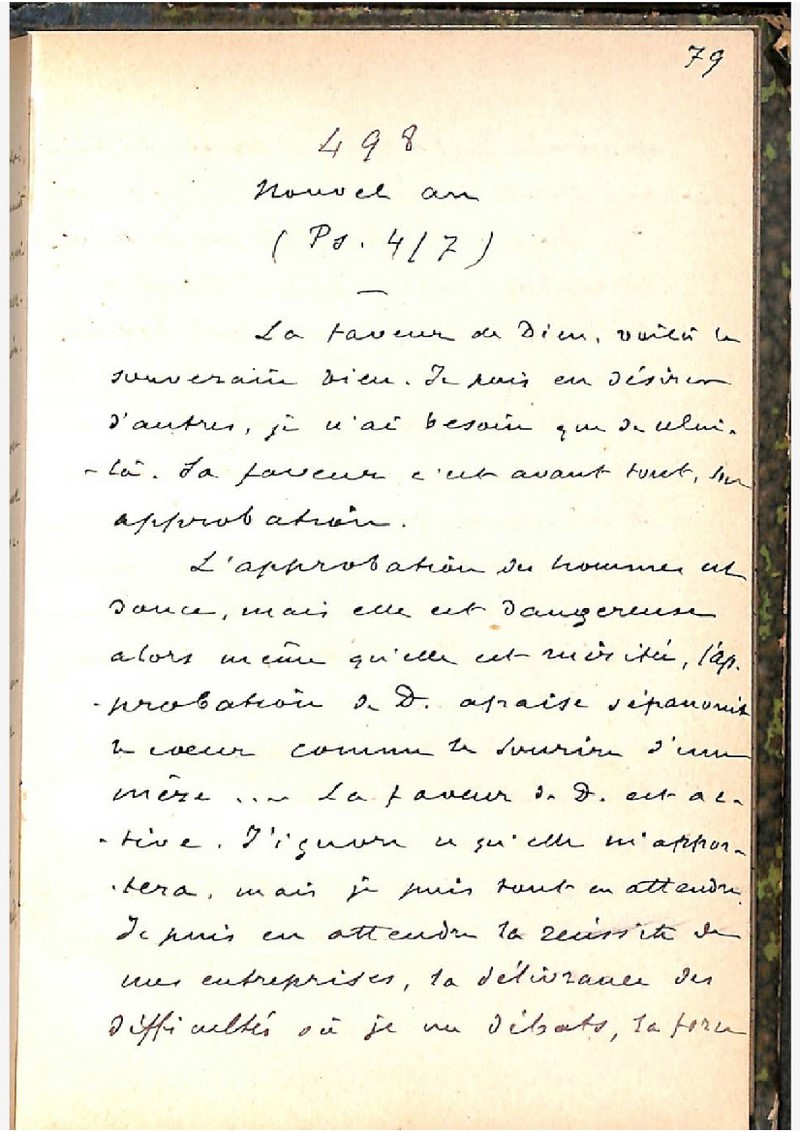 79
498
Nouvel an
(Ps. 4/7)
La faveur de Dieu, voilà le
souverain bien. Je puis en désirer
d'autres, je n'ai besoin que de celui-
-là. Sa faveur c'est avant tout, son
approbation.
L'approbation des hommes est
douce, mais elle est dangereuse
alors même qu'elle est méritée, l'ap-
-probation de D. apaise épanouit
le coeur comme le sourire d'une
mère ... La faveur de D. est ac-
-tive. J'ignore ce qu'elle m'appor-
-tera, mais je puis tout en attendre.
Je puis en attendre la réussite de
mes entreprises, la délivrance des
difficultés où je me débats, la force